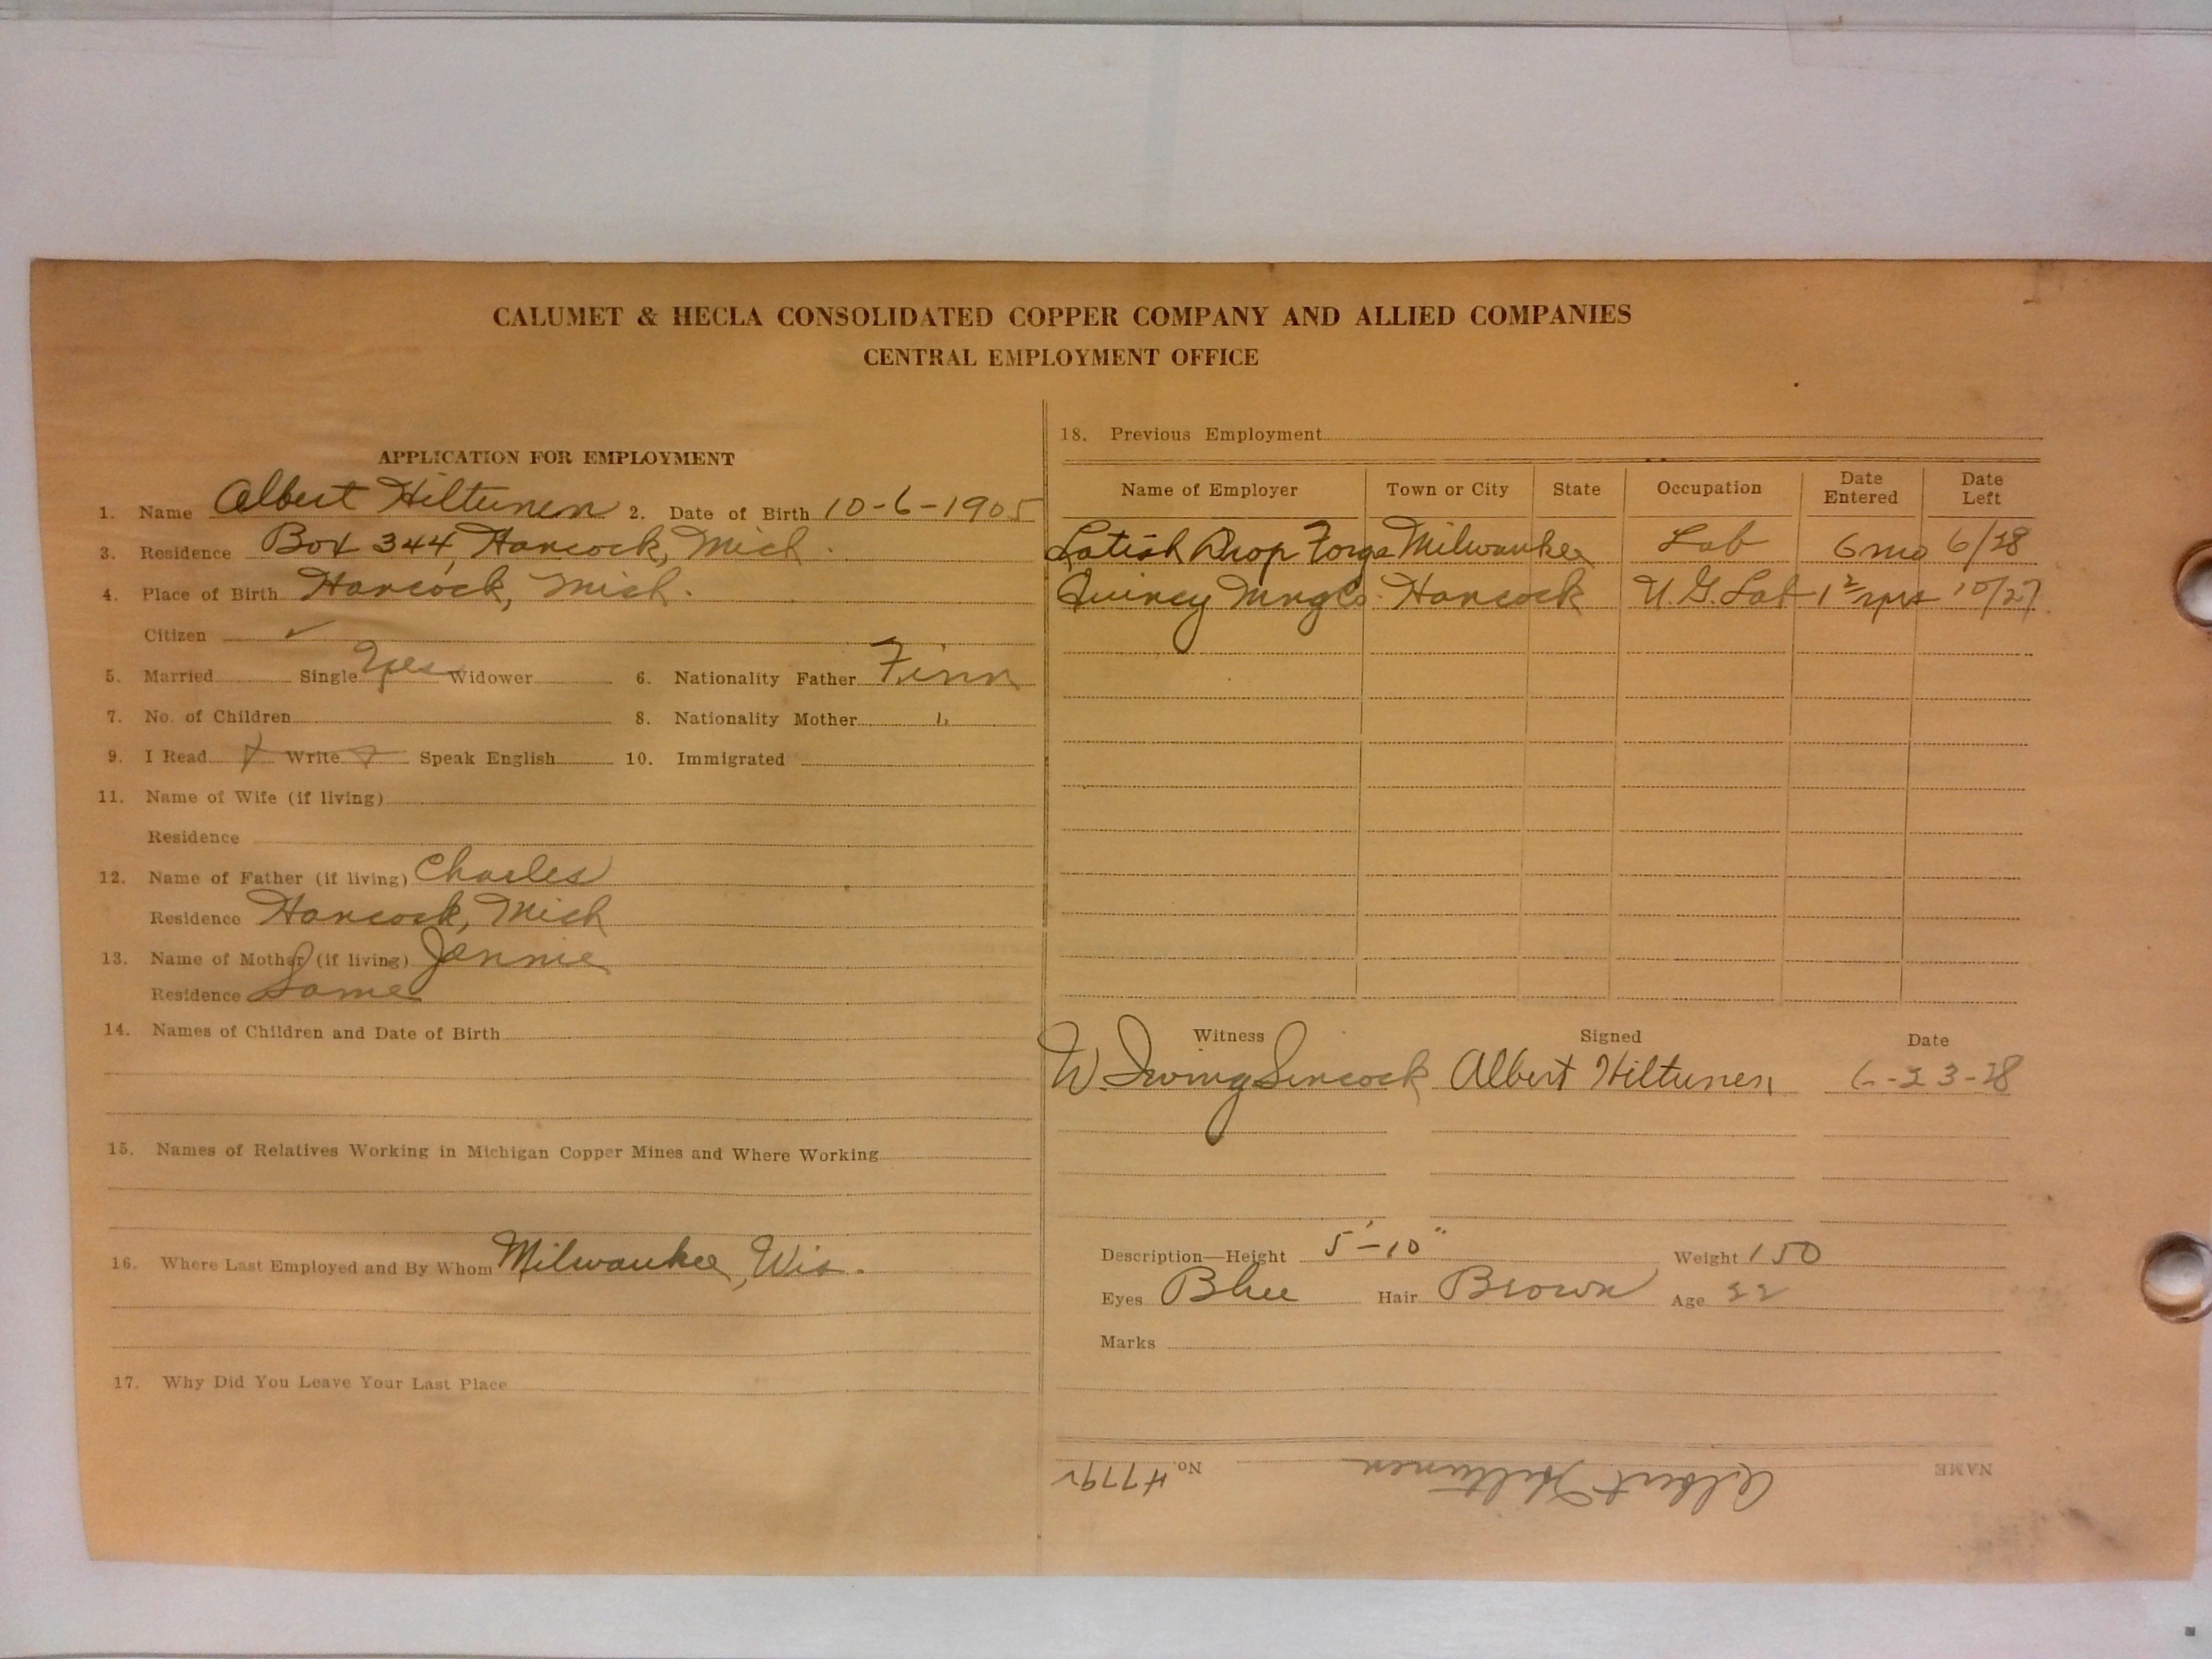 CALUMET & HECLA CONSOLIDATED COPPER COMPANY AND ALLIED COMPANIES
CENTRAL EMPLOYMENT OFFICE
APPLICATION FOR EMPLOYMENT
1. Name Albert Hiltunen 2. Date of Birth 10-6-1905
3. Residence Box 344, Hancock, Mich.
4. Place of Birth Hancock, Mich.
Citizen ✓
5. Married Single Yes Widower 6. Nationality Father Finn
7. No. of Children 8. Nationality Mother "
9. I Read Write Speak English 10. Immigrated
11. Name of Wife (if living)
Residence
12. Name of Father (if living) Charles
Residence Hancock, Mich
13. Name of Mother (if living) Jennie
Residence Same
14. Names of Children and Date of Birth
15. Names of Relatives Working in Michigan Copper Mines and Where Working
16. Where Last Employed and By Whom Milwaukee, Wis.
17. Why Did You Leave Your Last Place
18. Previous Employment
Name of Employer Town or City State Occupation Date Entered Date Left
Drop Forge Milwaukee Lab 6 mo 6/28
Quincy Mng Co. Hancock U.G. Lab 10/27
Witness Signed Date
W. Irving Sincock Albert Hiltunen 6-23-28
Description—Height 5'-10" Weight 150
Eyes Blue Hair Brown Age 22
Marks
NAME Albert Hiltunen No.